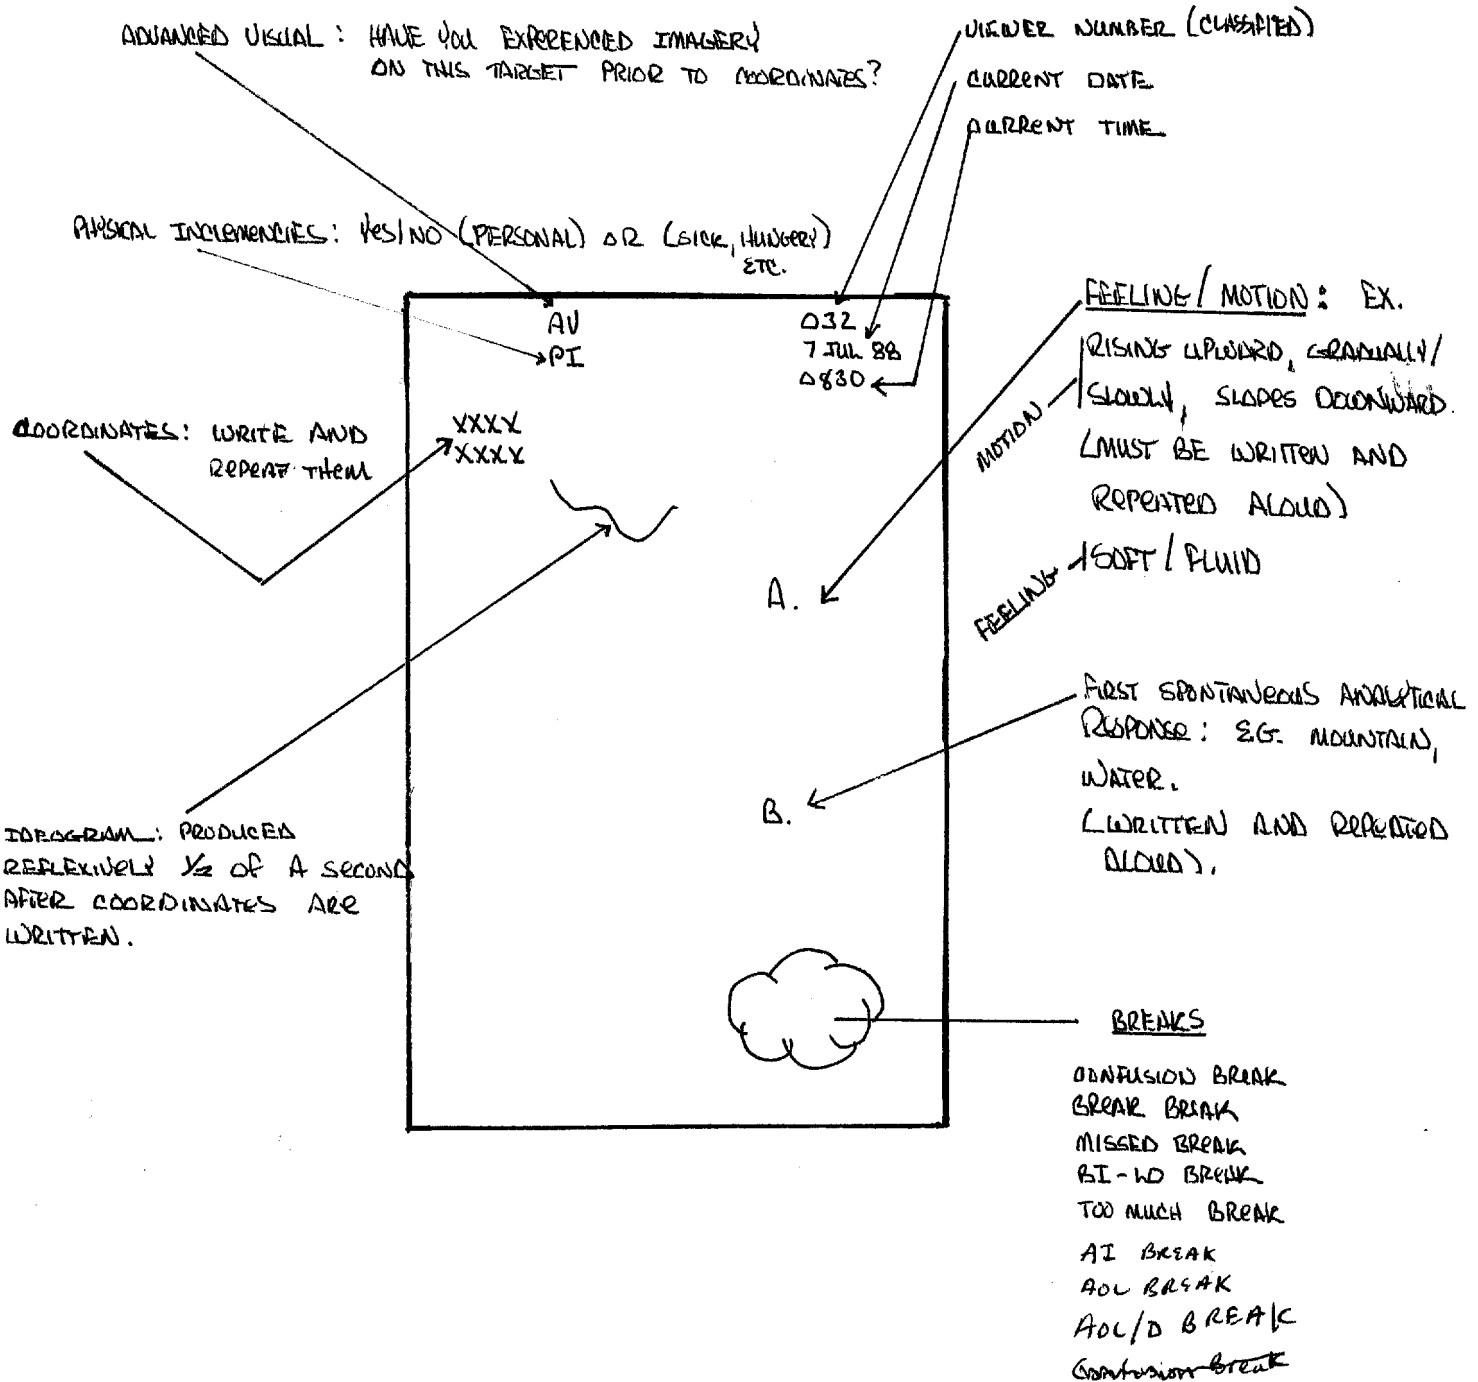 ADVANCED VISUAL: HAVE YOU EXPERENCED IMAGERY
ON THIS TARGET PRIOR TO COORDINATES?
VIEWER NUMBER (CLASSIFIED)
CURRENT DATE
CURRENT TIME
PHYSICAL INCLEMENCIES: YES/NO (PERSONAL) OR (SICK, HUNGERY)
ETC.
AV
PI
032
7 JUL 88
0830
XXXX
XXXX
COORDINATES: WRITE AND
REPEAT THEM
FEELING/MOTION: EX.
MOTION
RISING UPWARD, GRADUALLY/
SLOWLY, SLOPES DOWNWARD.
(MUST BE WRITTEN AND
REPEATED ALOUD)
FEELING
SOFT/FLUID
A.
FIRST SPONTANEOUS ANALYTICAL
RESPONSE: E.G. MOUNTAIN,
WATER.
(WRITTEN AND REPEATED
ALOUD).
B.
IDEOGRAM: PRODUCED
REFLEXIVELY 1/2 OF A SECOND
AFTER COORDINATES ARE
WRITTEN.
BREAKS
CONFUSION BREAK
BREAK BREAK
MISSED BREAK
BI-LO BREAK
TOO MUCH BREAK
AI BREAK
AOL BREAK
AOL/D BREAK
Confusion Break